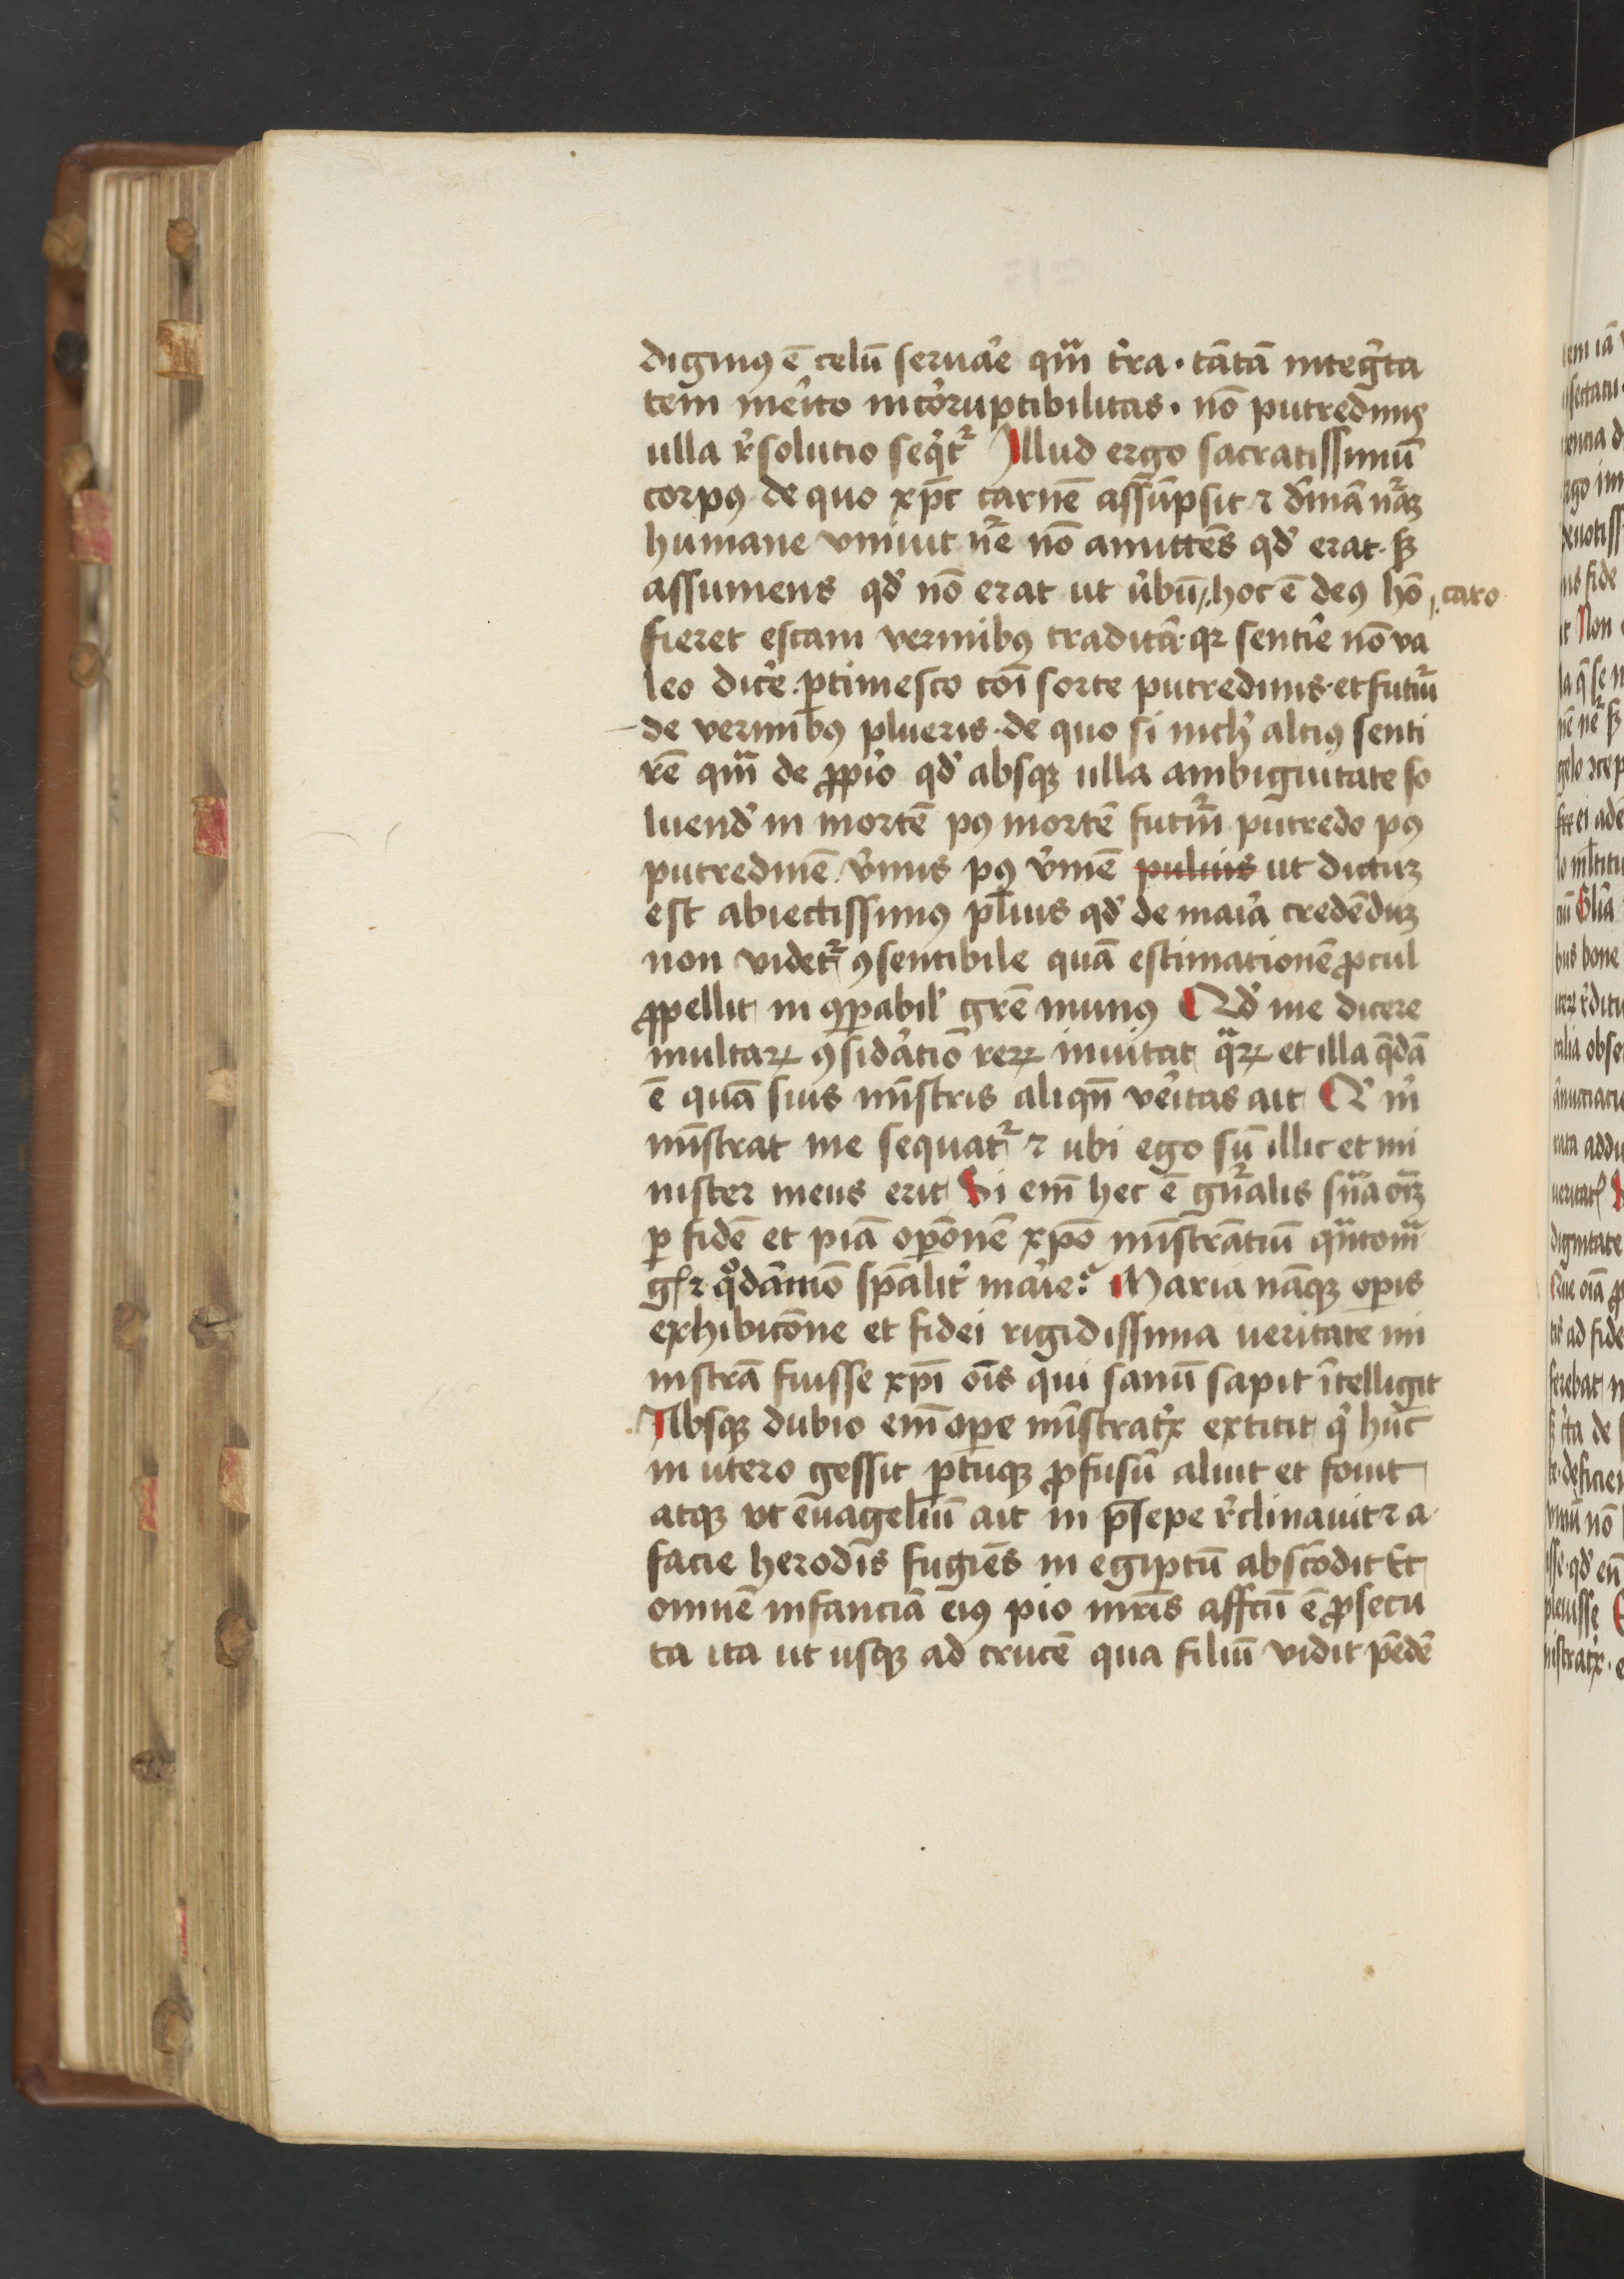 dignꝰ ē celū seruaˀe qm̄ tˀra · tātā integˀta
tem meˀito incoˀruptibilitas · nō putredinis
ulla rˀsolutio seqˀtᷣ Illud ergo sacratissimū
corpꝰ de quo xp̄c carnē assūpsit ⁊ dīnā nᷣaꝫ
humane vniuit nᷣe nō amittēs qđ erat · sꝫ
assumens qđ nō erat ut vˀbū hoc ē deꝰ hō caro
fieret escam vermibꝰ traditā · qꝛ sentiˀe nō va
leo diceˀ ꝑtimesco cōi sorte putredinis · et futuᷣ
de vermibꝰ plueris · de quo si nichˀ altiꝰ senti
rē qm̄ de ꝓpˀo qđ absqꝫ ulla ambiguitate so
luendˀ in mortē pꝰ mortē futuᷣ putredo pꝰ
putredinē vˀmis pꝰ vˀmē puluis ut dictuꝫ
est abiectissimꝰ pl̄uis qđ de maˀia credēduꝫ
non videtᷣ ꝯsentibile quā estimationē ꝓcul
ꝓpellit in ꝯꝑabilˀ gr̄e munꝰ Qđ me dicere
multaꝝ ꝯsidˀatio reꝝ inuitat qᷓꝝ et illa q̄dā
ē quā suis mīstris aliqn̄ veˀitas ait Qˀ mˀ
mīstrat me sequatᷣ ⁊ ubi ego sū illic et mi
nister meus erit Si em̄ hec ē gn̄ᷣalis sn̄ia oīꝫ
ꝑ fidē et piā oꝑonē xp̄o mīstrātiū
qᵒdāmō sp̄alitˀ maˀie Maria nāqꝫ oꝑis
exhibicōne et fidei rigidissima ueritate mi
nistrā fuisse xp̄i oīs qui sanū sapit ītelligit
Absqꝫ dubio em̄ oꝑe mīstratˀx extitit qˀ hūc
in utero gessit ꝑtuqꝫ ꝓfusū aluit et fouit
atqꝫ vt ēuageliū ait in p̄sepe rˀclinauit ⁊ a
facie herodīs fugiēs in egiptū abscōdit Et
omnē infanciā eiꝰ pio mr̄is affcū ē ꝓsecu
ta ita ut usqꝫ ad crucē qua filiū vidit pēdē